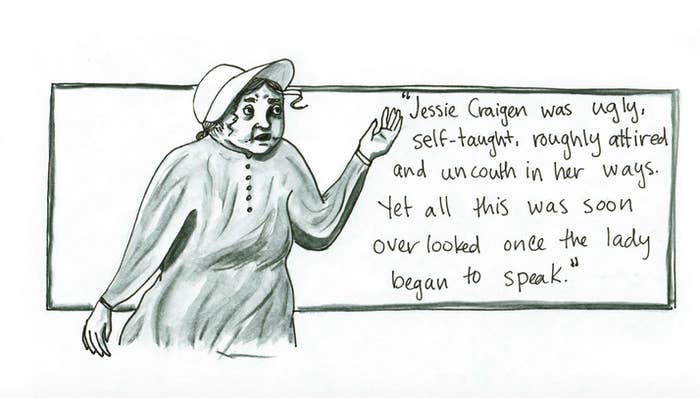 "Jessie Craigen was ugly,
self-taught, roughly attired
and uncouth in her ways.
Yet all this was soon
overlooked once the lady
began to speak."